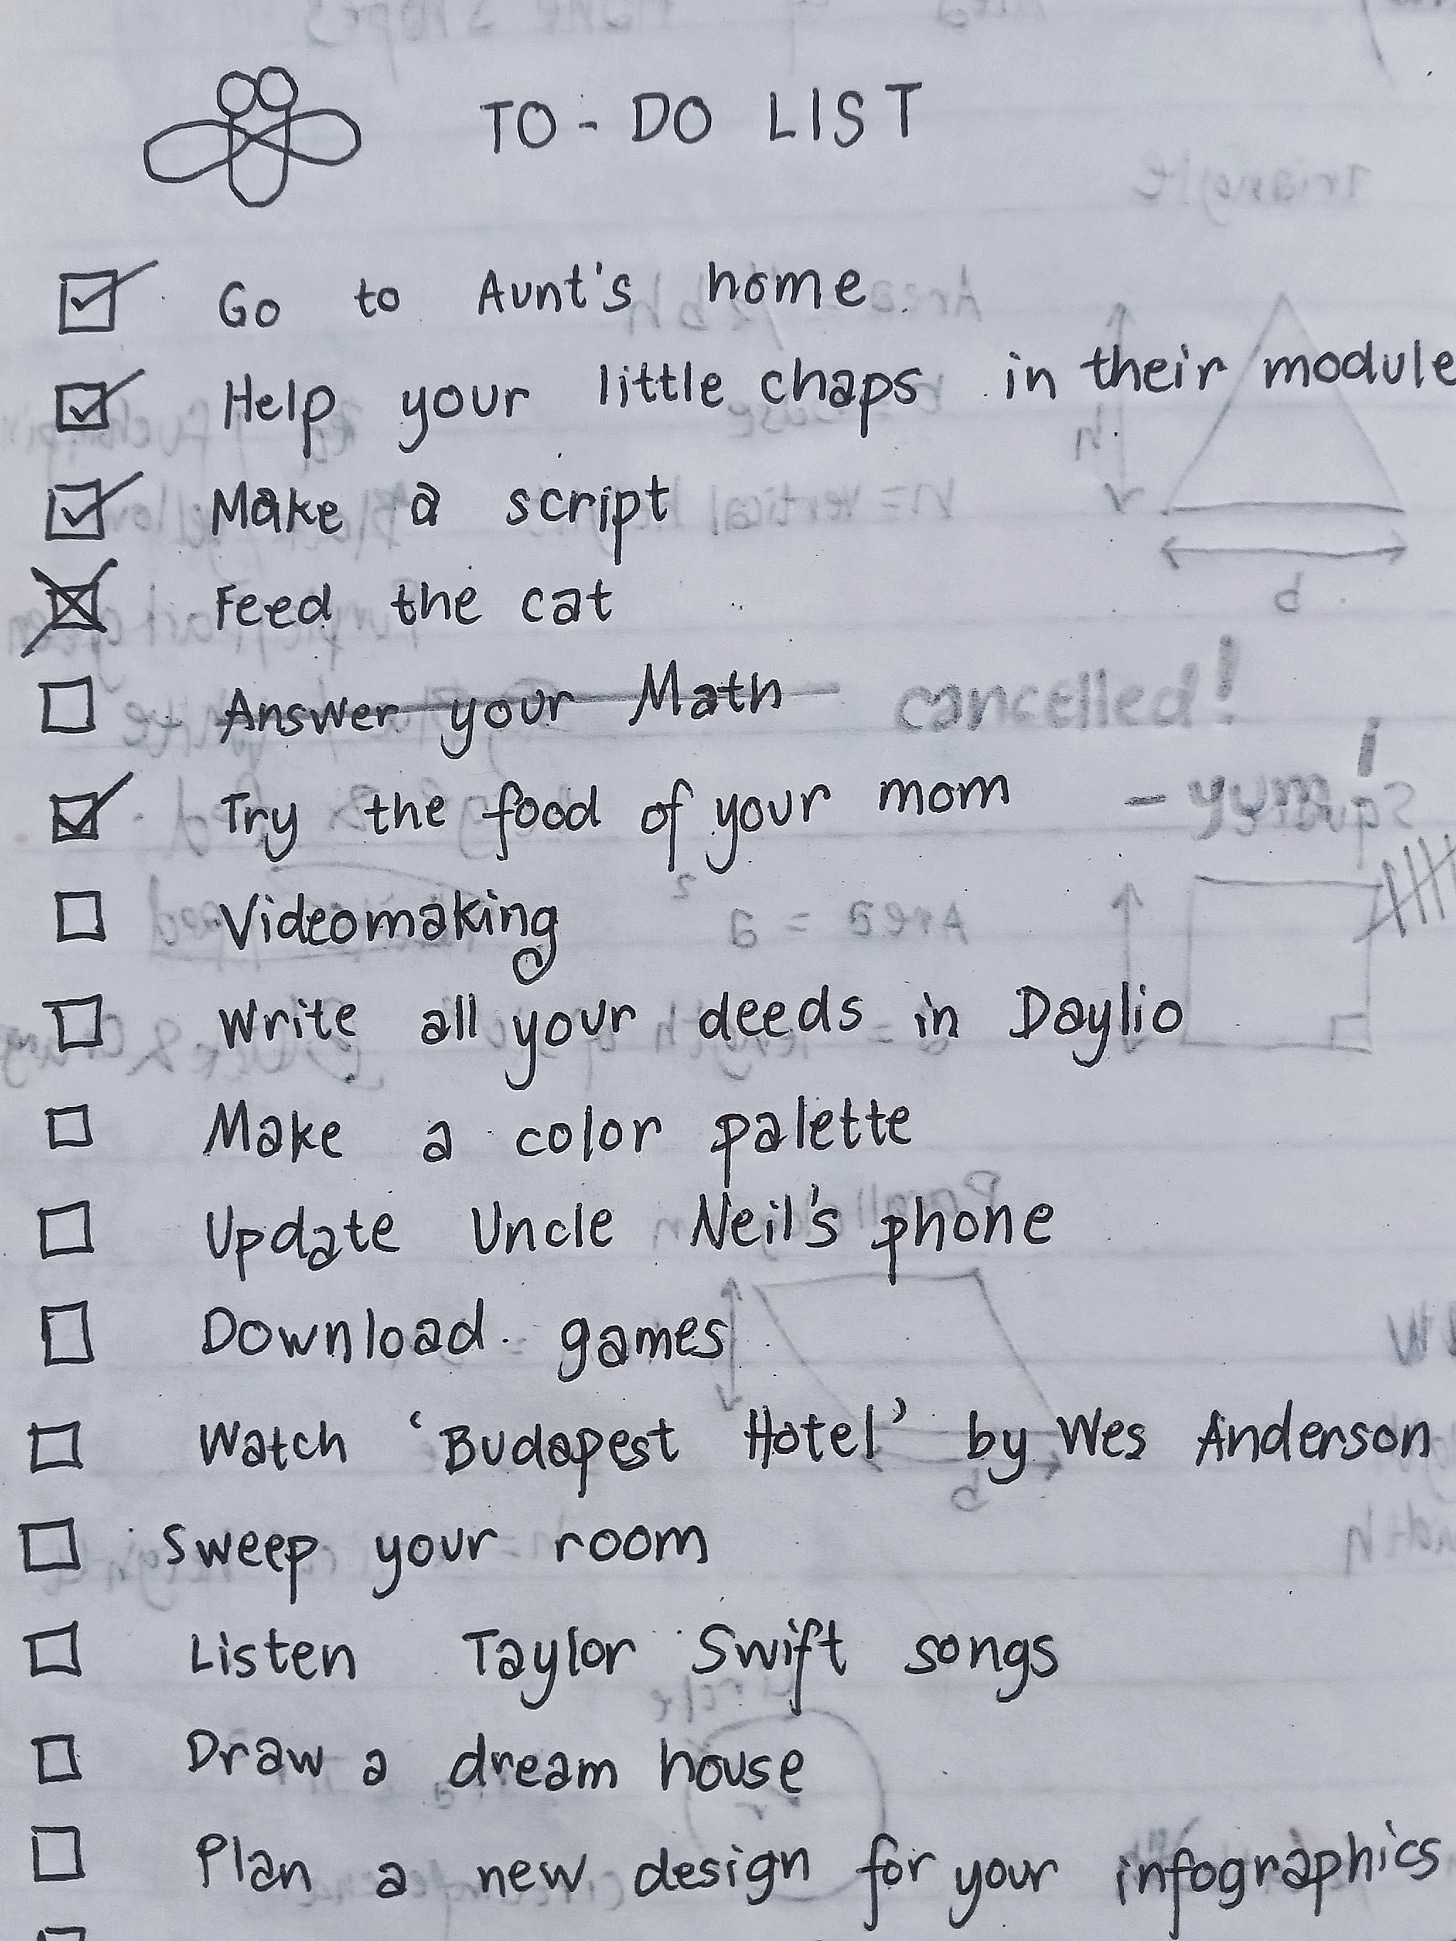 TO-DO LIST
Go to Aunt's home
Help your little chaps in their module
Make a script
Feed the cat
Answer your Math cancelled!
Try the food of your mom - yum!
Videomaking
Write all your deeds in Daylio
Make a color palette
Update Uncle Neil's phone
Download games
Watch ‘Budapest Hotel’ by Wes Anderson
Sweep your room
Listen Taylor Swift songs
Draw a dream house
Plan a new design for your infographics